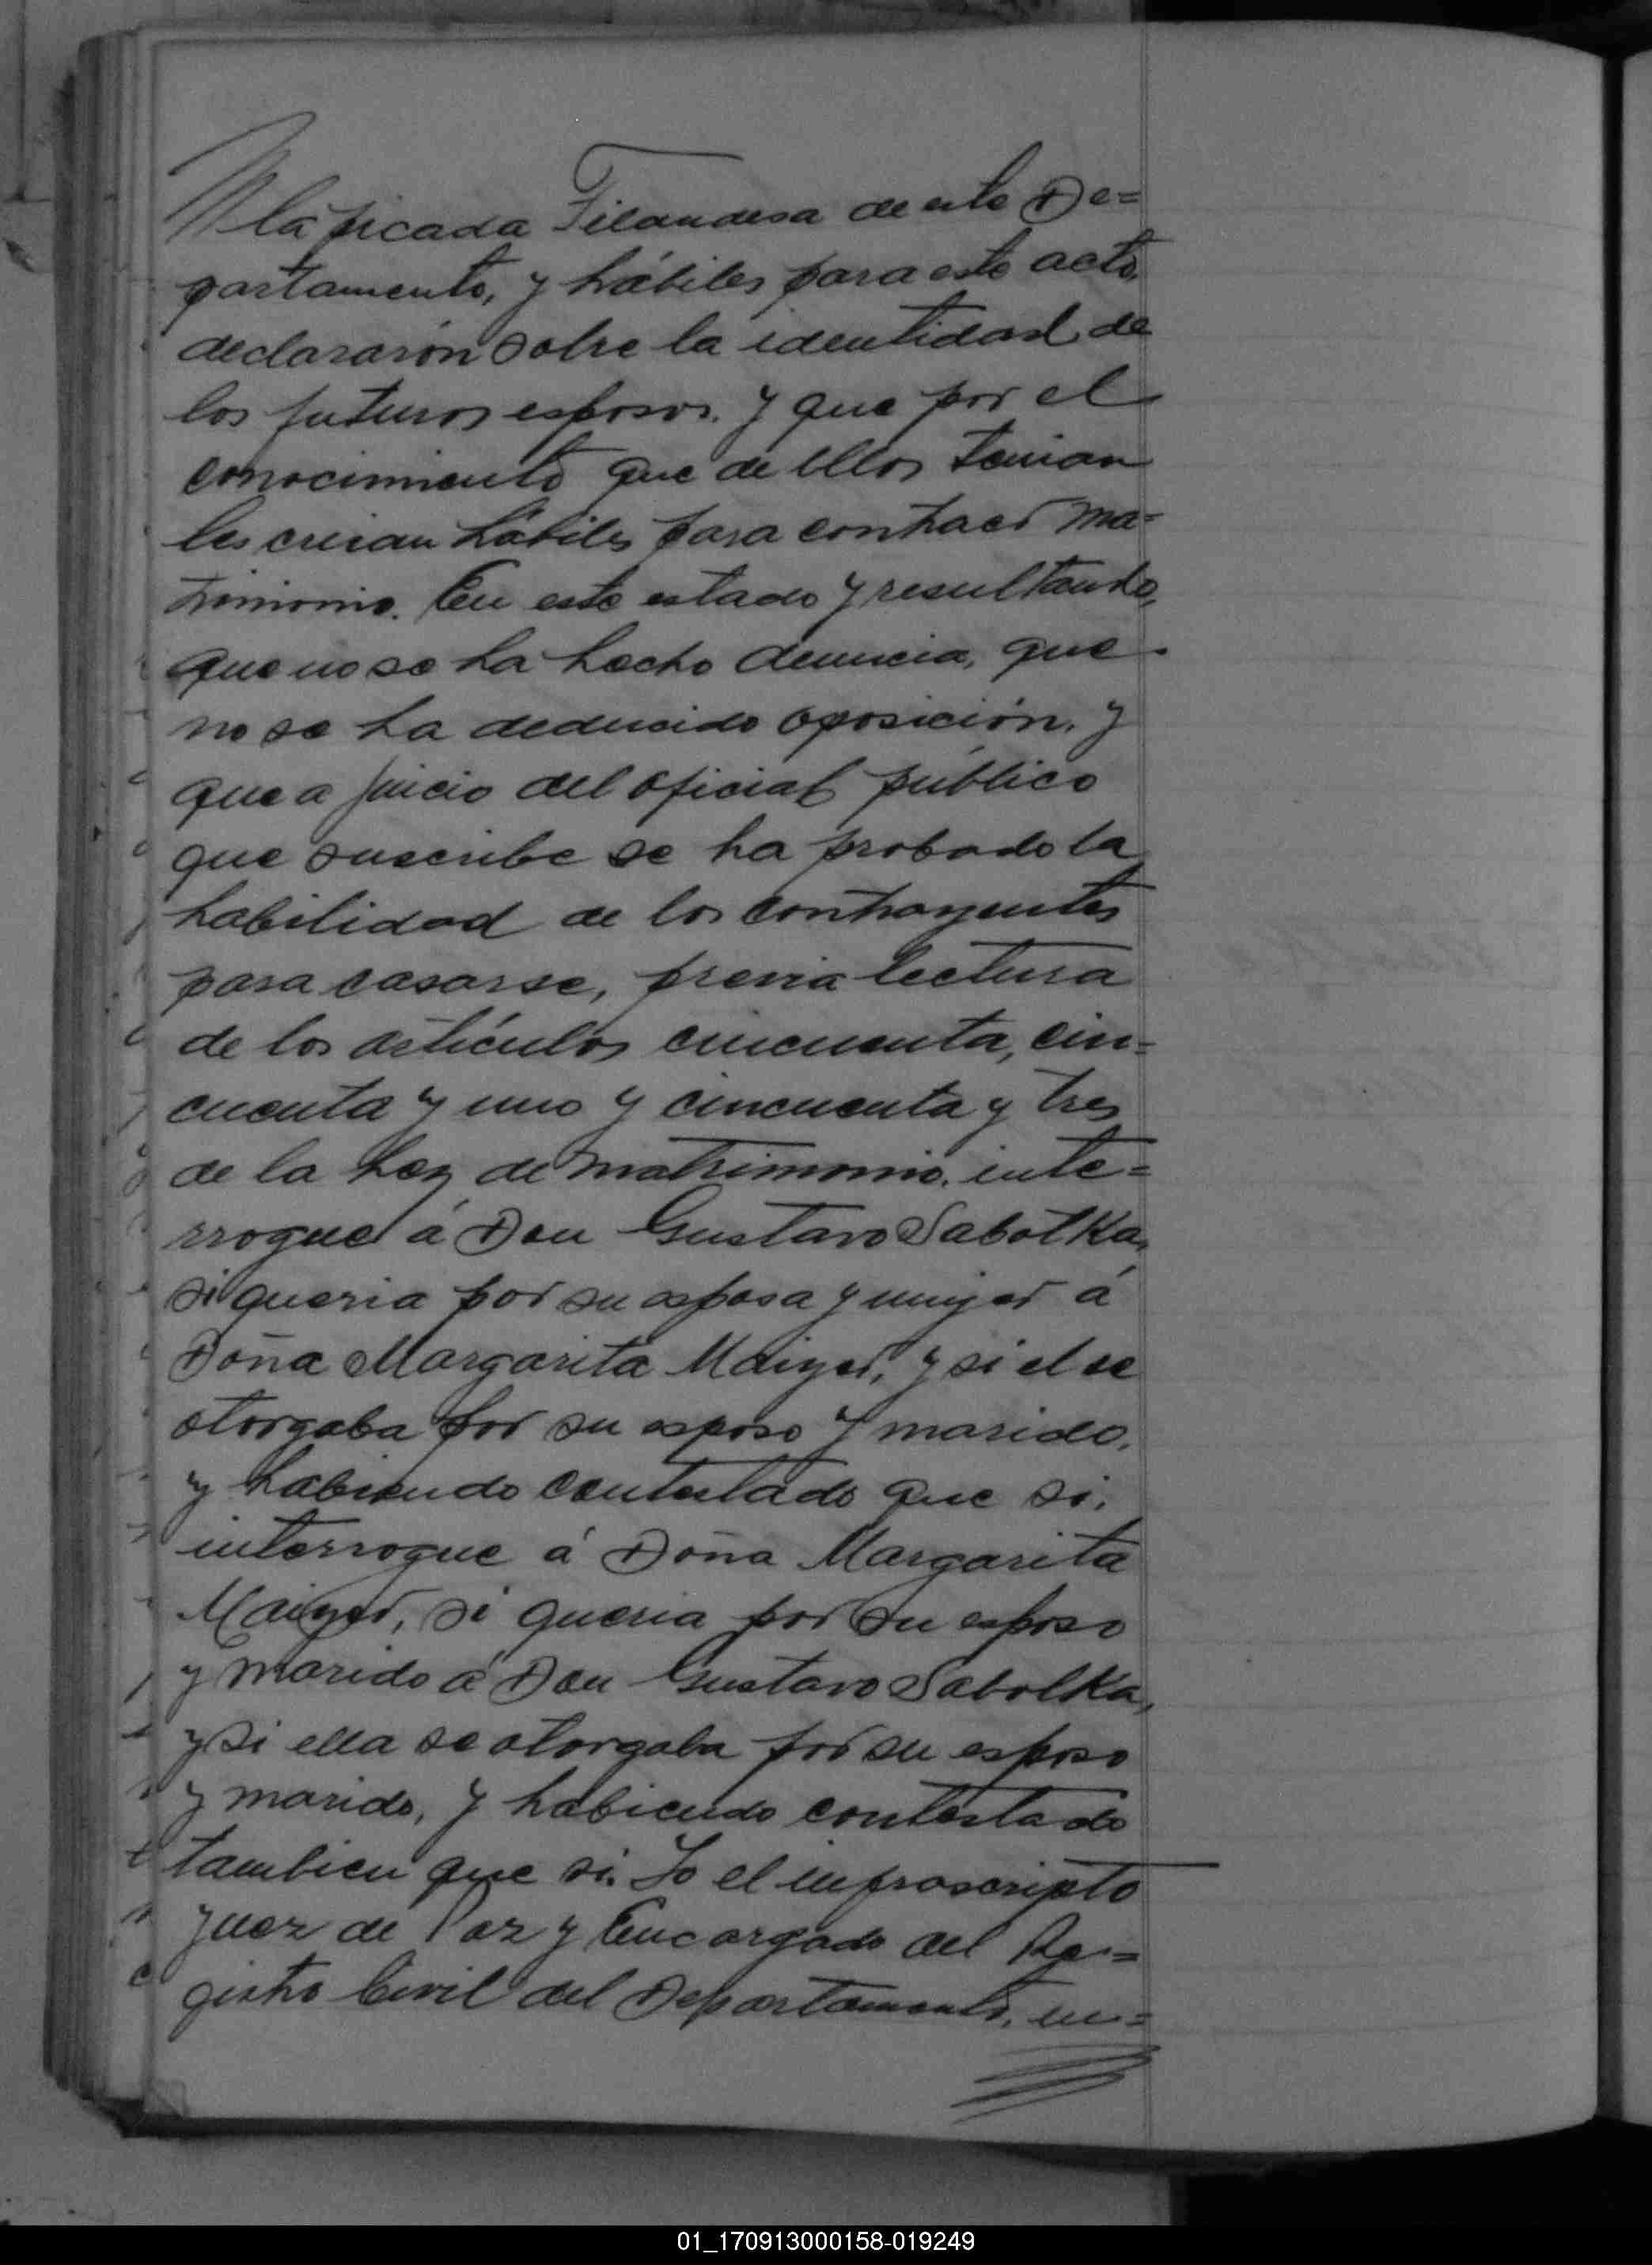 la picada Filandesa de este De=
partamento, y hábiles para este acto,
declararón sobre la identidad de
los futuros esposos. y que por el
conocimiento que de ellos tenian
les creian hábiles para contraer ma=
trimonio. En este estado y resultando,
que no se ha hecho denuncia, que
no se ha deducido oposición, y
que a juicio del oficial público
que suscribe se ha probado la
habilidad de los contrayentes
para casarse, previa lectura
de los artículos cincuenta, cin=
cuenta y uno y cincuenta y tres
de la Ley de Matrimonio, inte=
rrogué á Don Gustavo Sabotka,
si queria por su esposa y mujer á
Doña Margarita Maiyer, y si el se
otorgaba por su esposo y marido,
y habiendo contestado que si,
interrogue á Doña Margarita
Maiyer, si queria por su esposo
y marido á Don Gustavo Sabolka,
y si ella se otorgaba por su esposo
y marido, y habiendo contestado
tambien que si. Yo el infrascripto
Juez de Paz y Encargado del Re=
gistro Civil del Departamento, en=
01_170913000158-019249